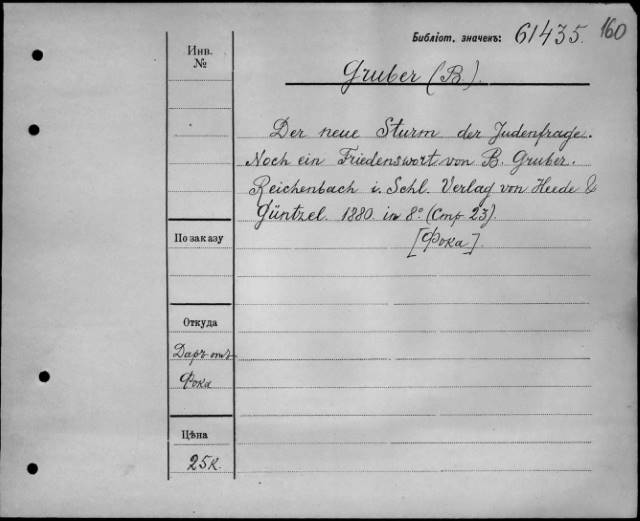 Библіот. значекъ: 61435. 160
Инв.
№
Gruber (B.).
Der neue Sturm der Judenfrage.
Noch ein Friedenswort von B. Gruber.
Reichenbach i. Schl. Verlag von Heede &
Güntzel. 1880. in 8° (Стр 23).
[Фока].
По заказу
Откуда
Даръ отъ
Фока
Цѣна
25к.